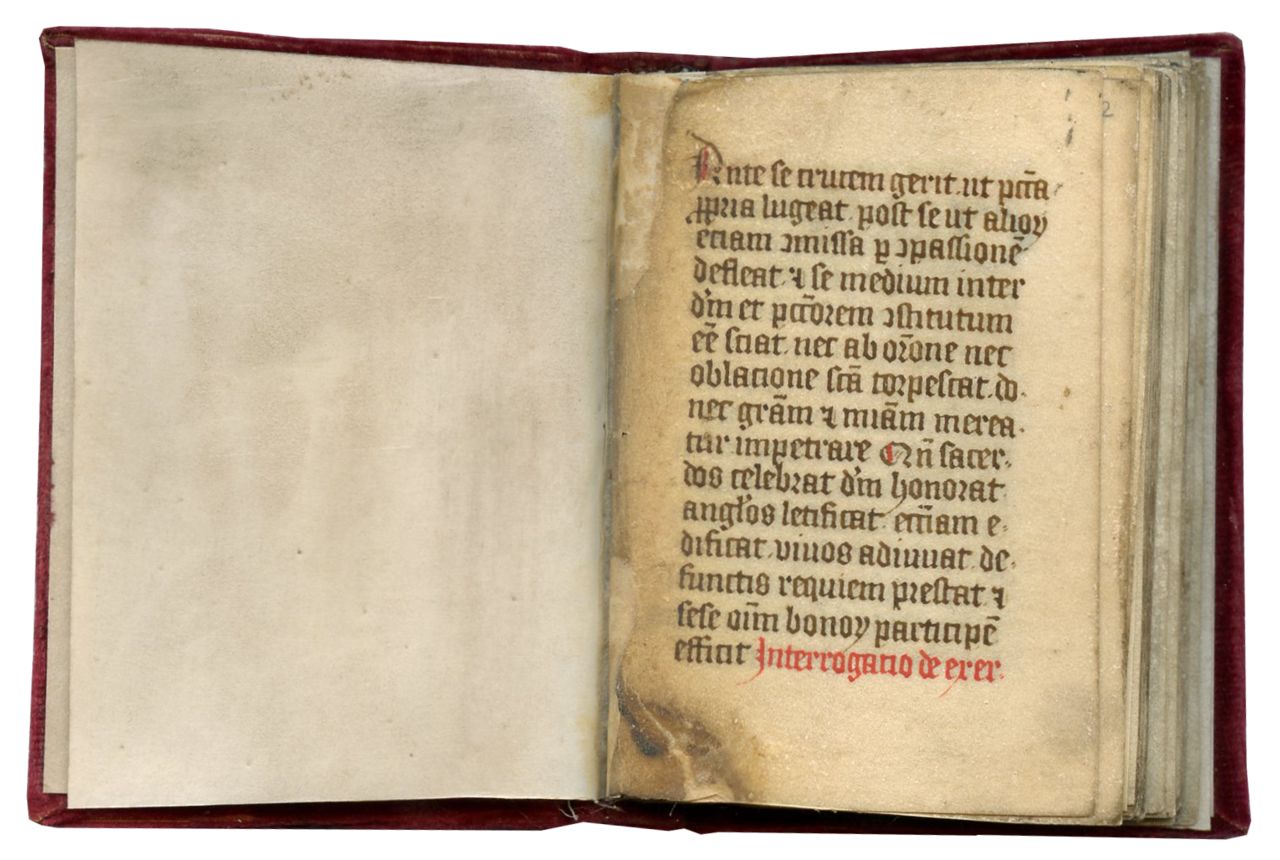 2
Ante se crucem gerit. ut pcc̄a
ꝓpria lugeat. post se ut alioꝝ
etiam ꝯmissa ꝑ ꝯpassionē
defleat. ⁊ se medium inter
dm̄ et pcc̄orem ꝯstitutum
eē̄ sciat. nec ab or̄one nec
oblacione sc̄ā torpescat. do-
nec grām ⁊ miām merea-
tur impetrare Qn̄ sacer-
dos celebrat dm̄ honorat
angl̓os letificat. ecc̄iam e-
dificat. viuos adiuuat. de-
functis requiem prestat ⁊
sese oīm bonoꝝ participē
efficit Interrogacio de exer-